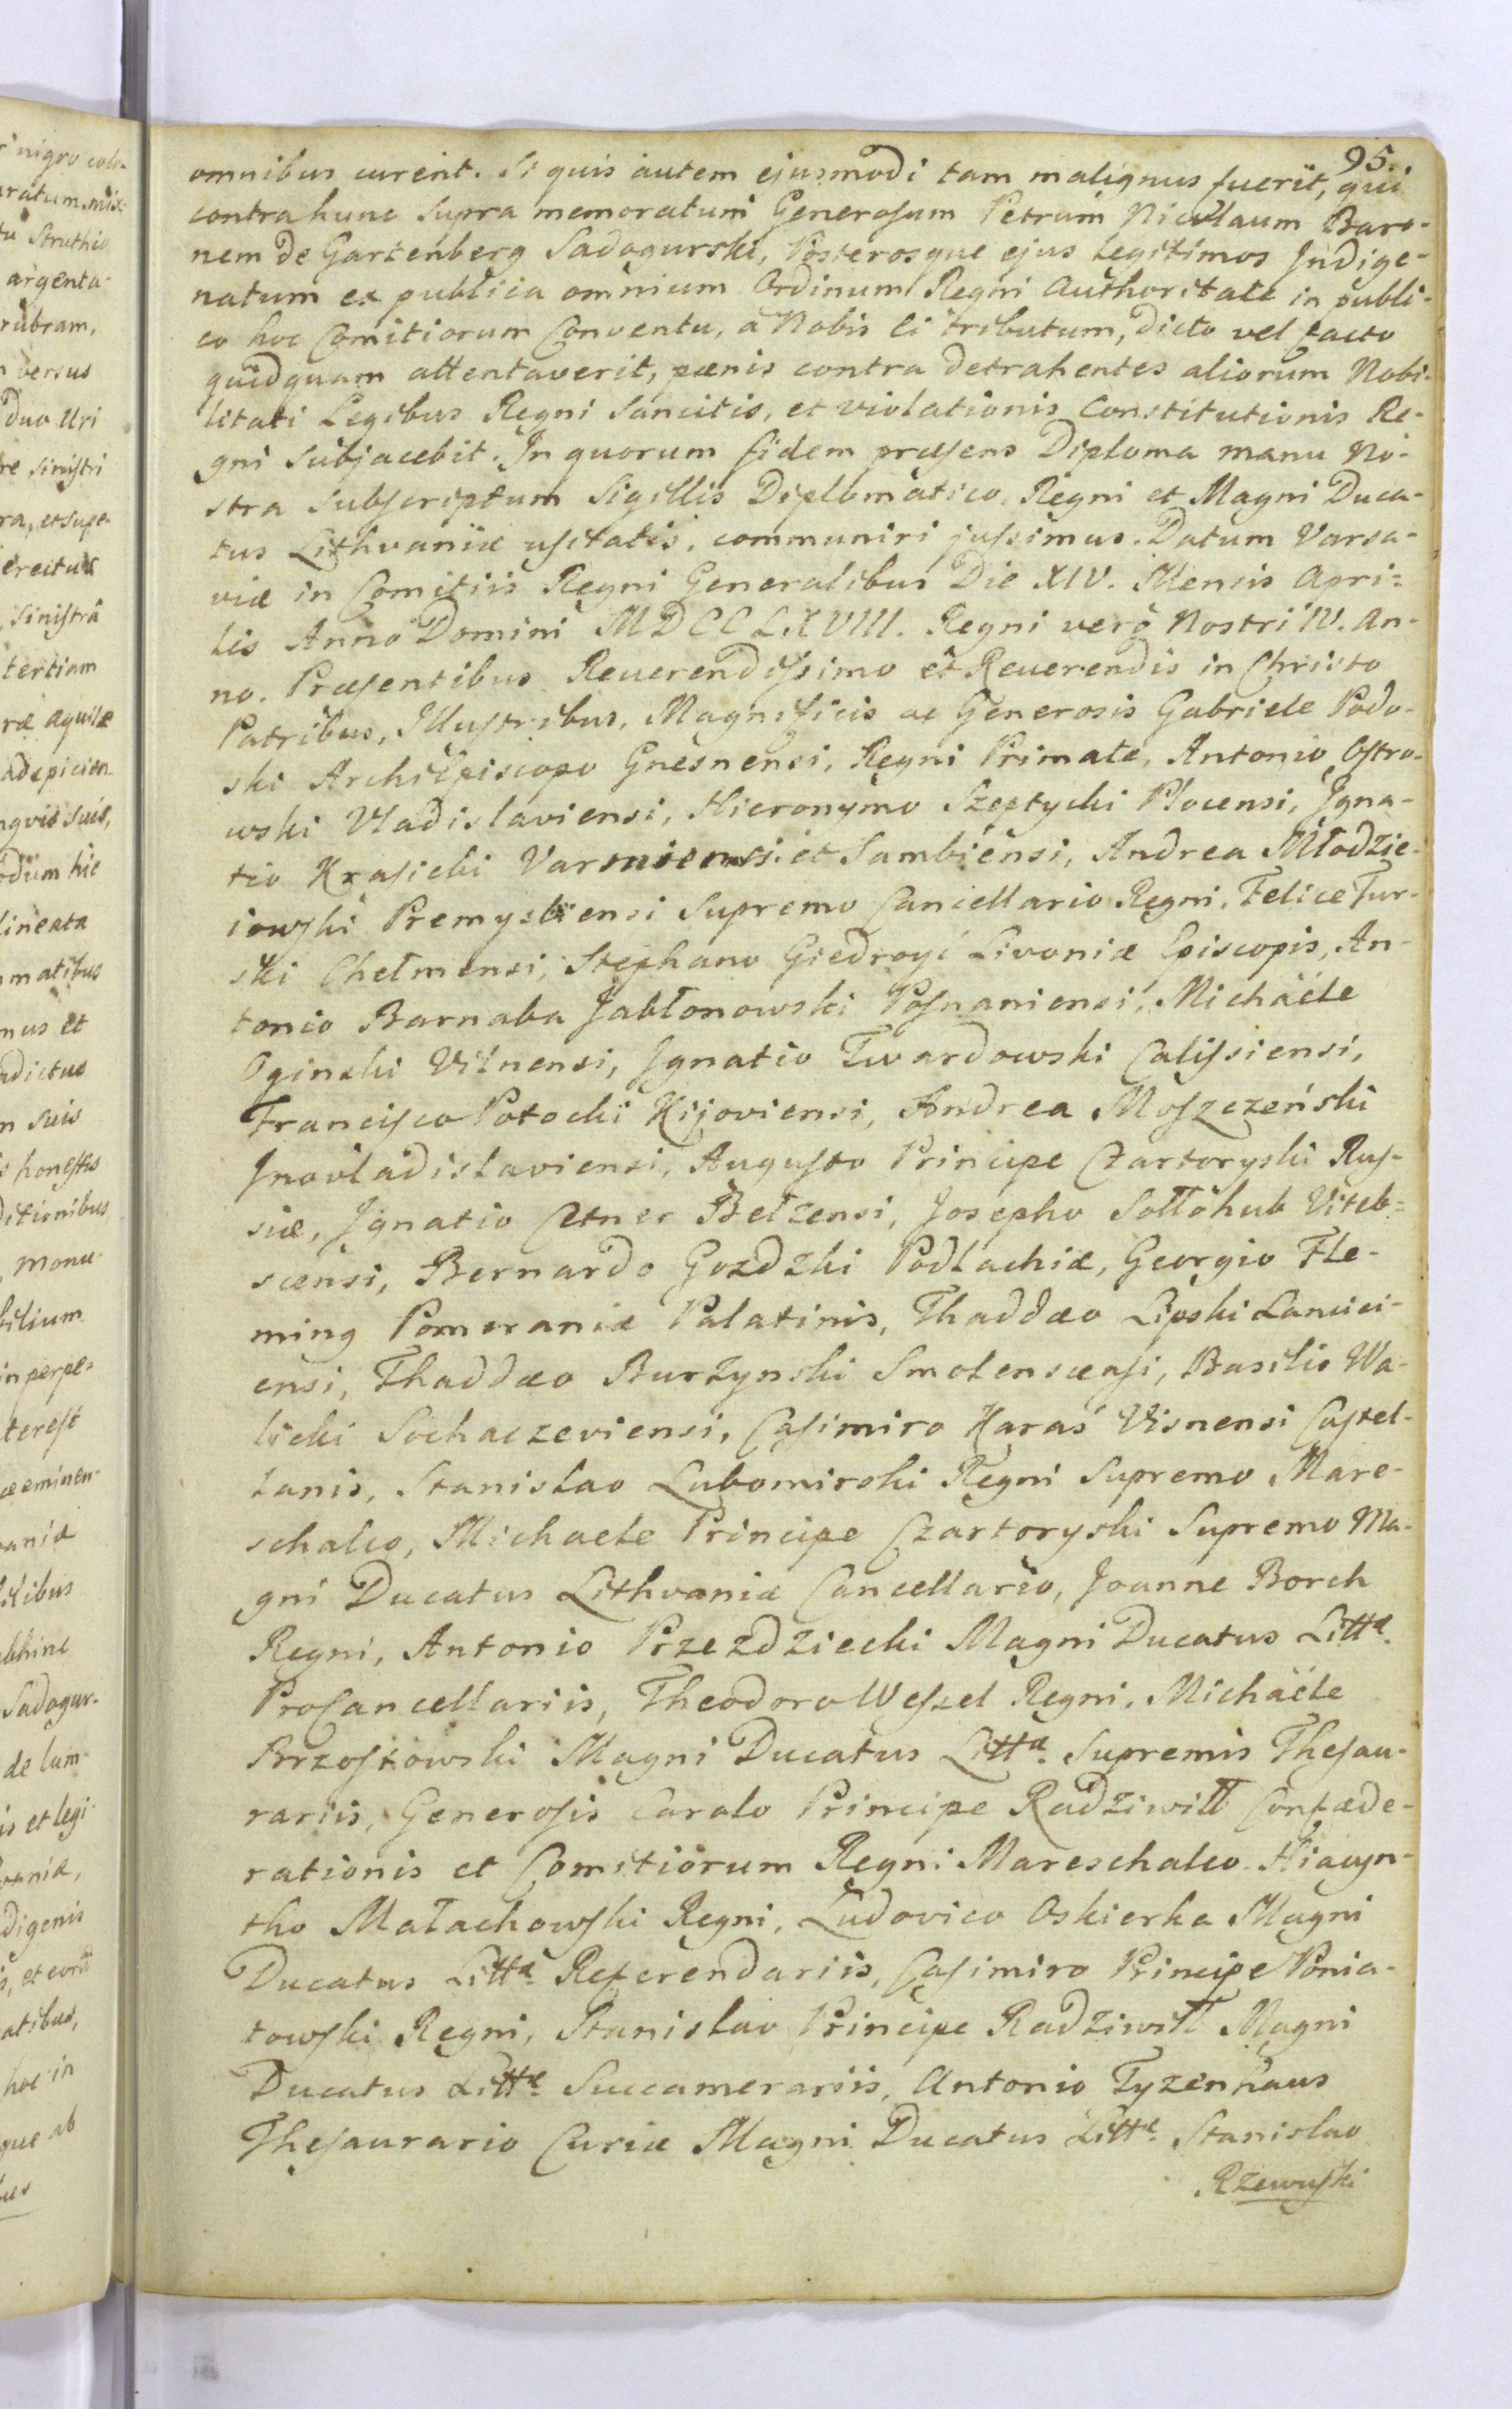 95.
omnibus curent. Si quis autem ejusmodi tam malignus fuerit, qui
contra hunc supra memoratum Generosum Petrum Nicolaum Baro-
nem de Gartenberg Sadogurski, Posterosque ejus legitimos Indige-
natum ex publica omnium Ordinum Regni Authoritate in publi-
co hoc Comitiorum Conventu, à Nobis ei tributum, dicto vel facto
quidquam attentaverit, pænis contra detrahentes aliorum Nobi-
litati Legibus Regni Sancitis, et violationis Constitutionis Re-
gni subjacebit. In quorum fidem præsens Diploma manu No-
stra Subscriptum Sigillis Diplomatico, Regni et Magni Duca-
tus Lithvaniæ usitatis, communiri jussimus. Datum Varsa-
viæ in Comitiis Regni Generalibus Die XIV. Mensis Apri-
lis Anno Domini MDCCLXVIII. Regni verò Nostri IV. An-
no. Præsentibus Reverendissimo et Reverendis in Christo
Patribus, Illustribus, Magnificis ac Generosis Gabriele Podo-
ski ArchiEpiscopo Gnesnensi, Regni Primate, Antonio Ostro-
wski Vladislaviensi, Hieronymo Szeptycki Plocensi, Igna-
tio Krasicki Varmiensi et Sambiensi, Andrea Młodzie-
iowski Premysliensi Supremo Cancellario Regni, Felice Tur-
ski Chełmensi, Stephano Giedroyć Livoniæ Episcopis, An-
tonio Barnaba Jabłonowski Posnaniensi, Michaële
Oginski Vilnensi, Ignatio Twardowski Calissiensi,
Francisco Potocki Kijoviensi, Andrea Moszczeński
Inovladislaviensi, Augusto Principe Czartoryski Rus-
siæ, Ignatio Cetner Bełzensi, Josepho Sołłohub Viteb-
scensi, Bernardo Gozdzki Podlachiæ, Georgio Fle-
ming Pomeraniæ Palatinis, Thaddæo Lipski Lancici-
ensi, Thaddæo Burzynski Smolenscensi, Basilio Wa-
licki Sochaczeviensi, Casimiro Karaś Visnensi Castel-
lanis, Stanislao Lubomirski Regni Supremo Mare-
schalco, Michaele Principe Czartoryski Supremo Ma-
gni Ducatus Lithvaniæ Cancellario, Joanne Borch
Regni, Antonio Przezdziecki Magni Ducatus Littæ.
ProCancellariis, Theodoro Wessel Regni, Michaële
Brzostowski Magni Ducatus Littæ. Supremis Thesau-
rariis, Generosis Carolo Principe Radziwiłł Confæde-
rationis et Comitiorum Regni Mareschalco. Hiacyn-
tho Małachowski Regni, Ludovico Oskierka Magni
Ducatus Littæ. Referendariis, Casimiro Principe Ponia-
towski Regni, Stanislao Principe Radziwiłł Magni
Ducatus Littæ. Succamerariis, Antonio Tyzenhaus
Thesaurario Curiæ Magni Ducatus Littæ. Stanislao
Rzewuski